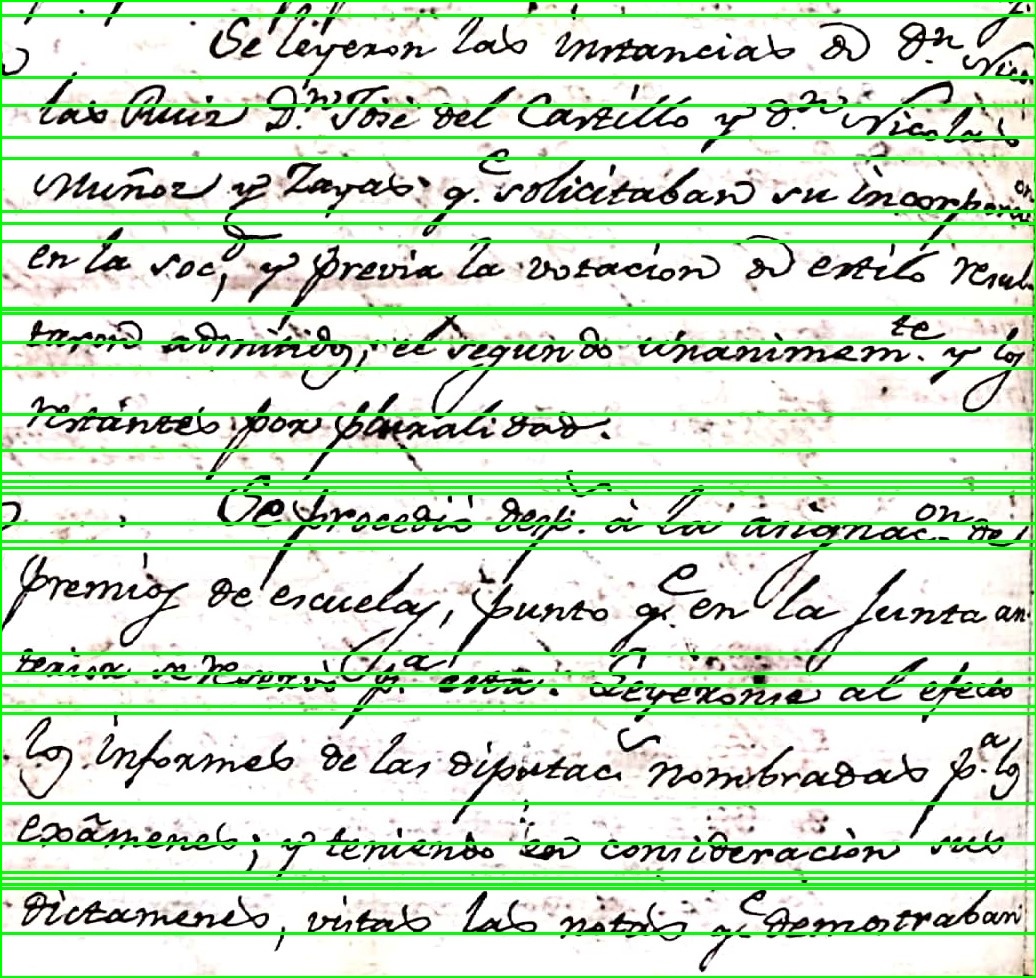 Se leyeron las instancias de Dn. Nico
las Ruiz Dn. José del Castillo y dn. Nicolás
Muñoz y Zayas qe. solicitaban su incorporon
en la socd, y previa la votacion de estilo resul
taron admitidos, el segundo unanimemte. y los
restantes por pluralidad.
Se procedió desp. à la asignacon. de
premios de escuelas, punto qe. en la Junta an-
terior se reservó pa. esta. Leyeronse al efecto
los informes de las diputac. nombradas pa. los
exãmenes; y teniendo en consideración sus
dictamenes, vistas las notas qe. demostraban